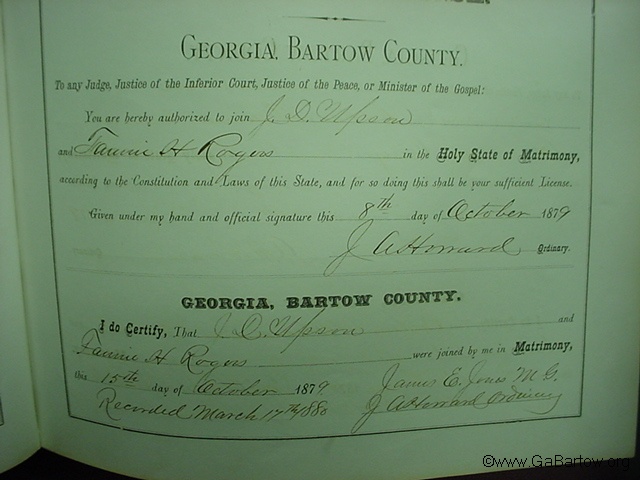 GEORGIA, BARTOW COUNTY.
To any Judge, Justice of the Inferior Court, Justice of the Peace, or Minister of the Gospel:
You are hereby authorized to join J. D. Upson
and Fannie H Rogers in the Holy State of Matrimony,
according to the Constitution and Laws of this State, and for so doing this shall be your sufficient License.
Given under my hand and official signature this 8th day of October 1879
J A Howard Ordinary.
GEORGIA, BARTOW COUNTY.
I do Certify, That J. D. Upson and
Fannie H Rogers were joined by me in Matrimony,
this 15th day of October 1879 James E. Jones M G.
Recorded March 17th 1880 J A Howard Ordinary
©www.GaBartow.org